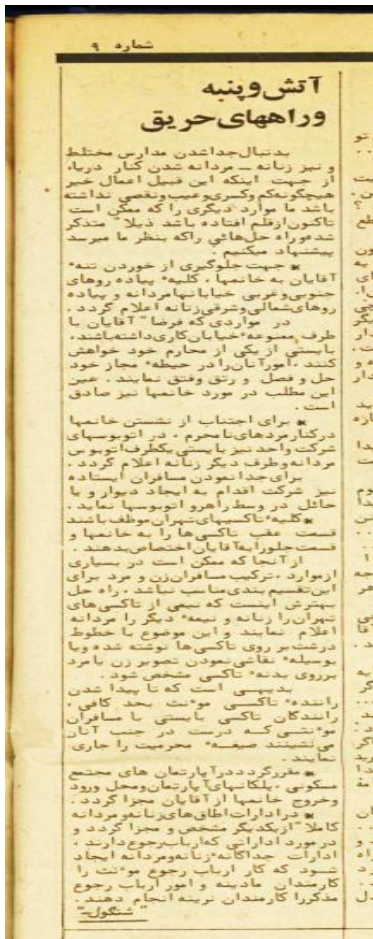 شماره ۹
آتش و پنبه
و راههای حریق
بدنبال جدا شدن مدارس مختلط
و نیز زنانه ــ مردانه شدن کنار دریا،
از جهت اینکه این قبیل اعمال خیر
هیچگونه کم و کسری و عیب و نقصی نداشته
باشد ما موارد دیگری را که ممکن است
تاکنون از قلم افتاده باشد ذیلا" متذکر
شده و راه حل‌هائی را که بنظر ما میرسد
پیشنهاد میکنیم .
* جهت جلوگیری از خوردن تنهء
آقایان به خانمها ، کلیهء پیاده روهای
جنوبی و غربی خیابانها مردانه و پیاده
روهای شمالی و شرقی زنانه اعلام گردد .
در مواردی که فرضا" آقایان با
طرف ممنوعهء خیابان کاری داشته باشند،
بایستی از یکی از محارم خود خواهش
کنند ، امور آنان را در حیطهء مجاز خود
حل و فصل و رتق وفتق نمایند . عین
این مطلب در مورد خانمها نیز صادق
است .
* برای اجتناب از نشستن خانمها
در کنار مردهای نامحرم ، در اتوبوسهای
شرکت واحد نیز بایستی یکطرف اتوبوس
مردانه و طرف دیگر زنانه اعلام گردد .
برای جدا نمودن مسافران ایستاده
نیز شرکت اقدام به ایجاد دیوار و یا
حائل در وسط راهرو اتوبوسها نماید .
* کلیهء تاکسیهای تهران موظف باشند
قسمت عقب تاکسی‌ها را به خانمها و
قسمت جلو را به آقایان اختصاص بدهند .
از آنجا که ممکن است در بسیاری
از موارد ، ترکیب مسافران زن و مرد برای
این تقسیم بندی مناسب نباشد ، راه حل
بهترش اینست که نیمی از تاکسی‌های
تهران را زنانه و نیمهء دیگر را مردانه
اعلام نمایند و این موضوع با خطوط
درشت بر روی تاکسی‌ها نوشته شده ویا
بوسیلهء نقاشی نمودن تصویر زن یا مرد
بر روی بدنهء تاکسی مشخص شود .
بدیهی است که تا پیدا شدن
رانندهء تاکسی موءنث بحد کافی ،
رانندگان تاکسی بایستی با مسافران
موءنثی که درست در جنب آنان
می‌نشینند صیغهء محرمیت را جاری
نمایند .
* مقرر گردد در آپارتمان های مجتمع
مسکونی ، پلکانهای آپارتمان و محل ورود
وخروج خانمها از آقایان مجزا گردد .
* در ادارات اطاق‌های زنانه و مردانه
کاملا" از یکدیگر مشخص و مجزا گردد و
در مورد اداراتی که ارباب رجوع دارند ،
ادارات جداگانهء زنانه و مردانه ایجاد
شود که کار ارباب رجوع موءنث را
کارمندان مادینه و امور ارباب رجوع
مذکر را کارمندان نرینه انجام دهند .
"شنگول"